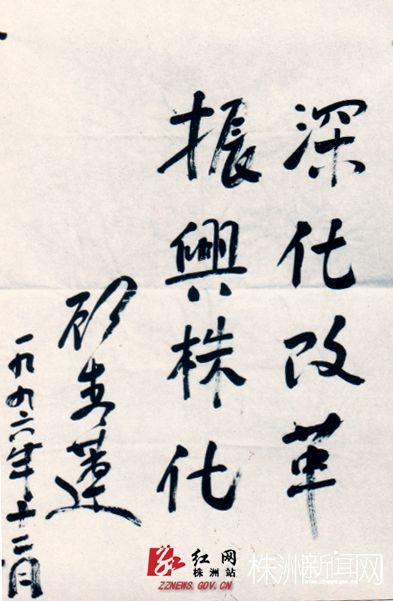 深化改革
振興株化
顾秀莲
一九九六年十二月
红网
株洲站
ZZNEWS.GOV.CN
株洲新闻网